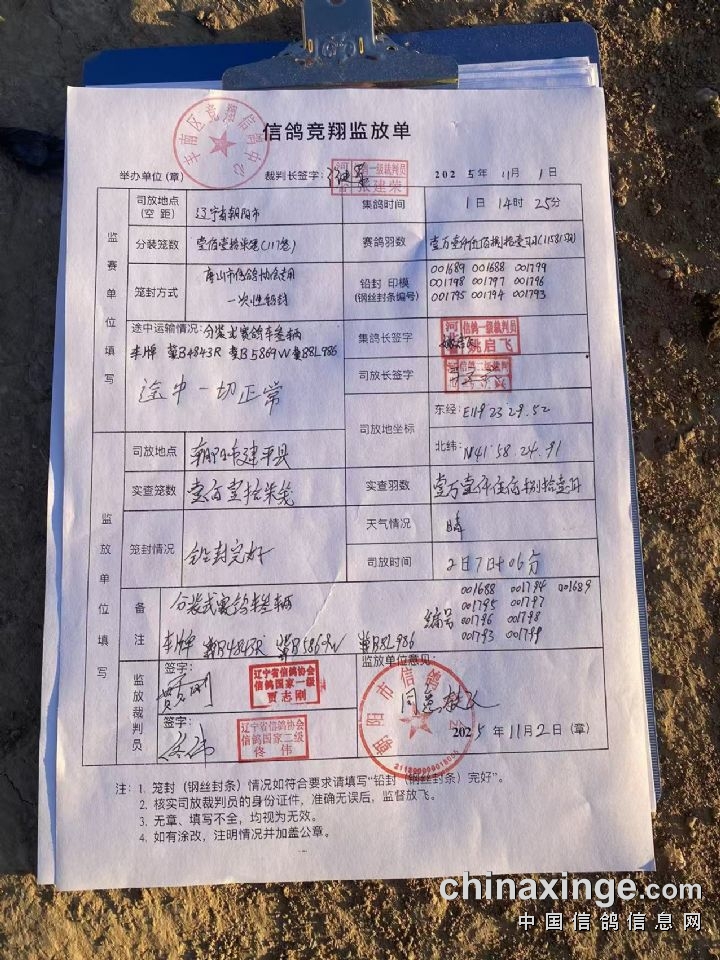 信鸽竞翔监放单
丰南区竞翔信鸽中心
举办单位(章) 裁判长签字: 河 信鸽一级裁判员 张建荣 2025年11月1日
监赛单位填写
司放地点(空距) 辽宁省朝阳市 集鸽时间 1日14时25分
分装笼数 壹佰壹拾柒笼(117笼) 赛鸽羽数 壹万壹仟伍佰捌拾壹羽(11581羽)
笼封方式 唐山市信鸽协会专用 一次性铅封 铅封 印模(钢丝封条编号)
001689 001688 001799
001798 001797 001796
001795 001794 001793
途中运输情况: 分装式赛鸽车叁辆
车牌 冀B4843R 冀B5869W 冀B8L986
途中一切正常
集鸽长签字 河 信鸽一级裁判员 姚启飞
司放长签字
司放地坐标 东经: E119 23 29.52
北纬: N41 58.24.91
监放单位填写
司放地点 朝阳市建平县
实查笼数 壹百壹拾柒笼 实查羽数 壹万壹仟伍佰捌拾壹羽
笼封情况 铅封完好 天气情况 晴
司放时间 2日7时06分
备注 分装式赛鸽车叁辆 编号
001688 001794 001689
001795 001797
001796 001798
001793 001799
车牌 冀B4843R 冀B5869W 冀B8L986
监放裁判员
签字: 贾志刚 辽宁省信鸽协会 信鸽国家一级 贾志刚
签字: 佟伟 辽宁省信鸽协会 信鸽国家二级 佟伟
监放单位意见:
同意放飞
朝阳市信鸽协会
2025年11月2日(章)
注: 1. 笼封(钢丝封条)情况如符合要求请填写“铅封(钢丝封条)完好”。
2. 核实司放裁判员的身份证件,准确无误后,监督放飞。
3. 无章、填写不全,均视为无效。
4. 如有涂改,注明情况并加盖公章。
chinaxinge.com
中国信鸽信息网